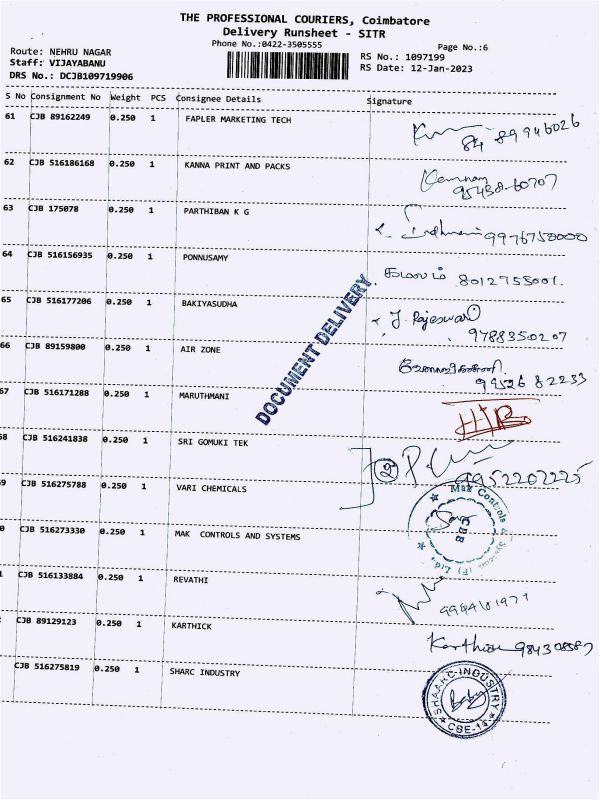 THE PROFESSIONAL COURIERS, Coimbatore
Delivery Runsheet - SITR
Phone No.:0422-3505555
Page No.:6
Route: NEHRU NAGAR
Staff: VIJAYABANU
DRS No.: DCJB109719906
RS No.: 1097199
RS Date: 12-Jan-2023
S No Consignment No Weight PCS Consignee Details Signature
61 CJB 89162249 0.250 1 FAPLER MARKETING TECH
84 89946026
62 CJB 516186168 0.250 1 KANNA PRINT AND PACKS
Kannan
95438-60707
63 CJB 175078 0.250 1 PARTHIBAN K G
9976750000
64 CJB 516156935 0.250 1 PONNUSAMY
கமலம் 8012755001.
65 CJB 516177206 0.250 1 BAKIYASUDHA
J. Rajeswari
9788350207
66 CJB 89159800 0.250 1 AIR ZONE
99526 82233
67 CJB 516171288 0.250 1 MARUTHMANI
DOCUMENT DELIVERY
68 CJB 516241838 0.250 1 SRI GOMUKI TEK
9952202225
9 CJB 516275788 0.250 1 VARI CHEMICALS
Mak Controls & Systems (P) Ltd.
0 CJB 516273330 0.250 1 MAK CONTROLS AND SYSTEMS
1 CJB 516133884 0.250 1 REVATHI
CJB 89129123 0.250 1 KARTHICK
Karthick
CJB 516275819 0.250 1 SHARC INDUSTRY
SHAARC INDUSTRY
CBE-14